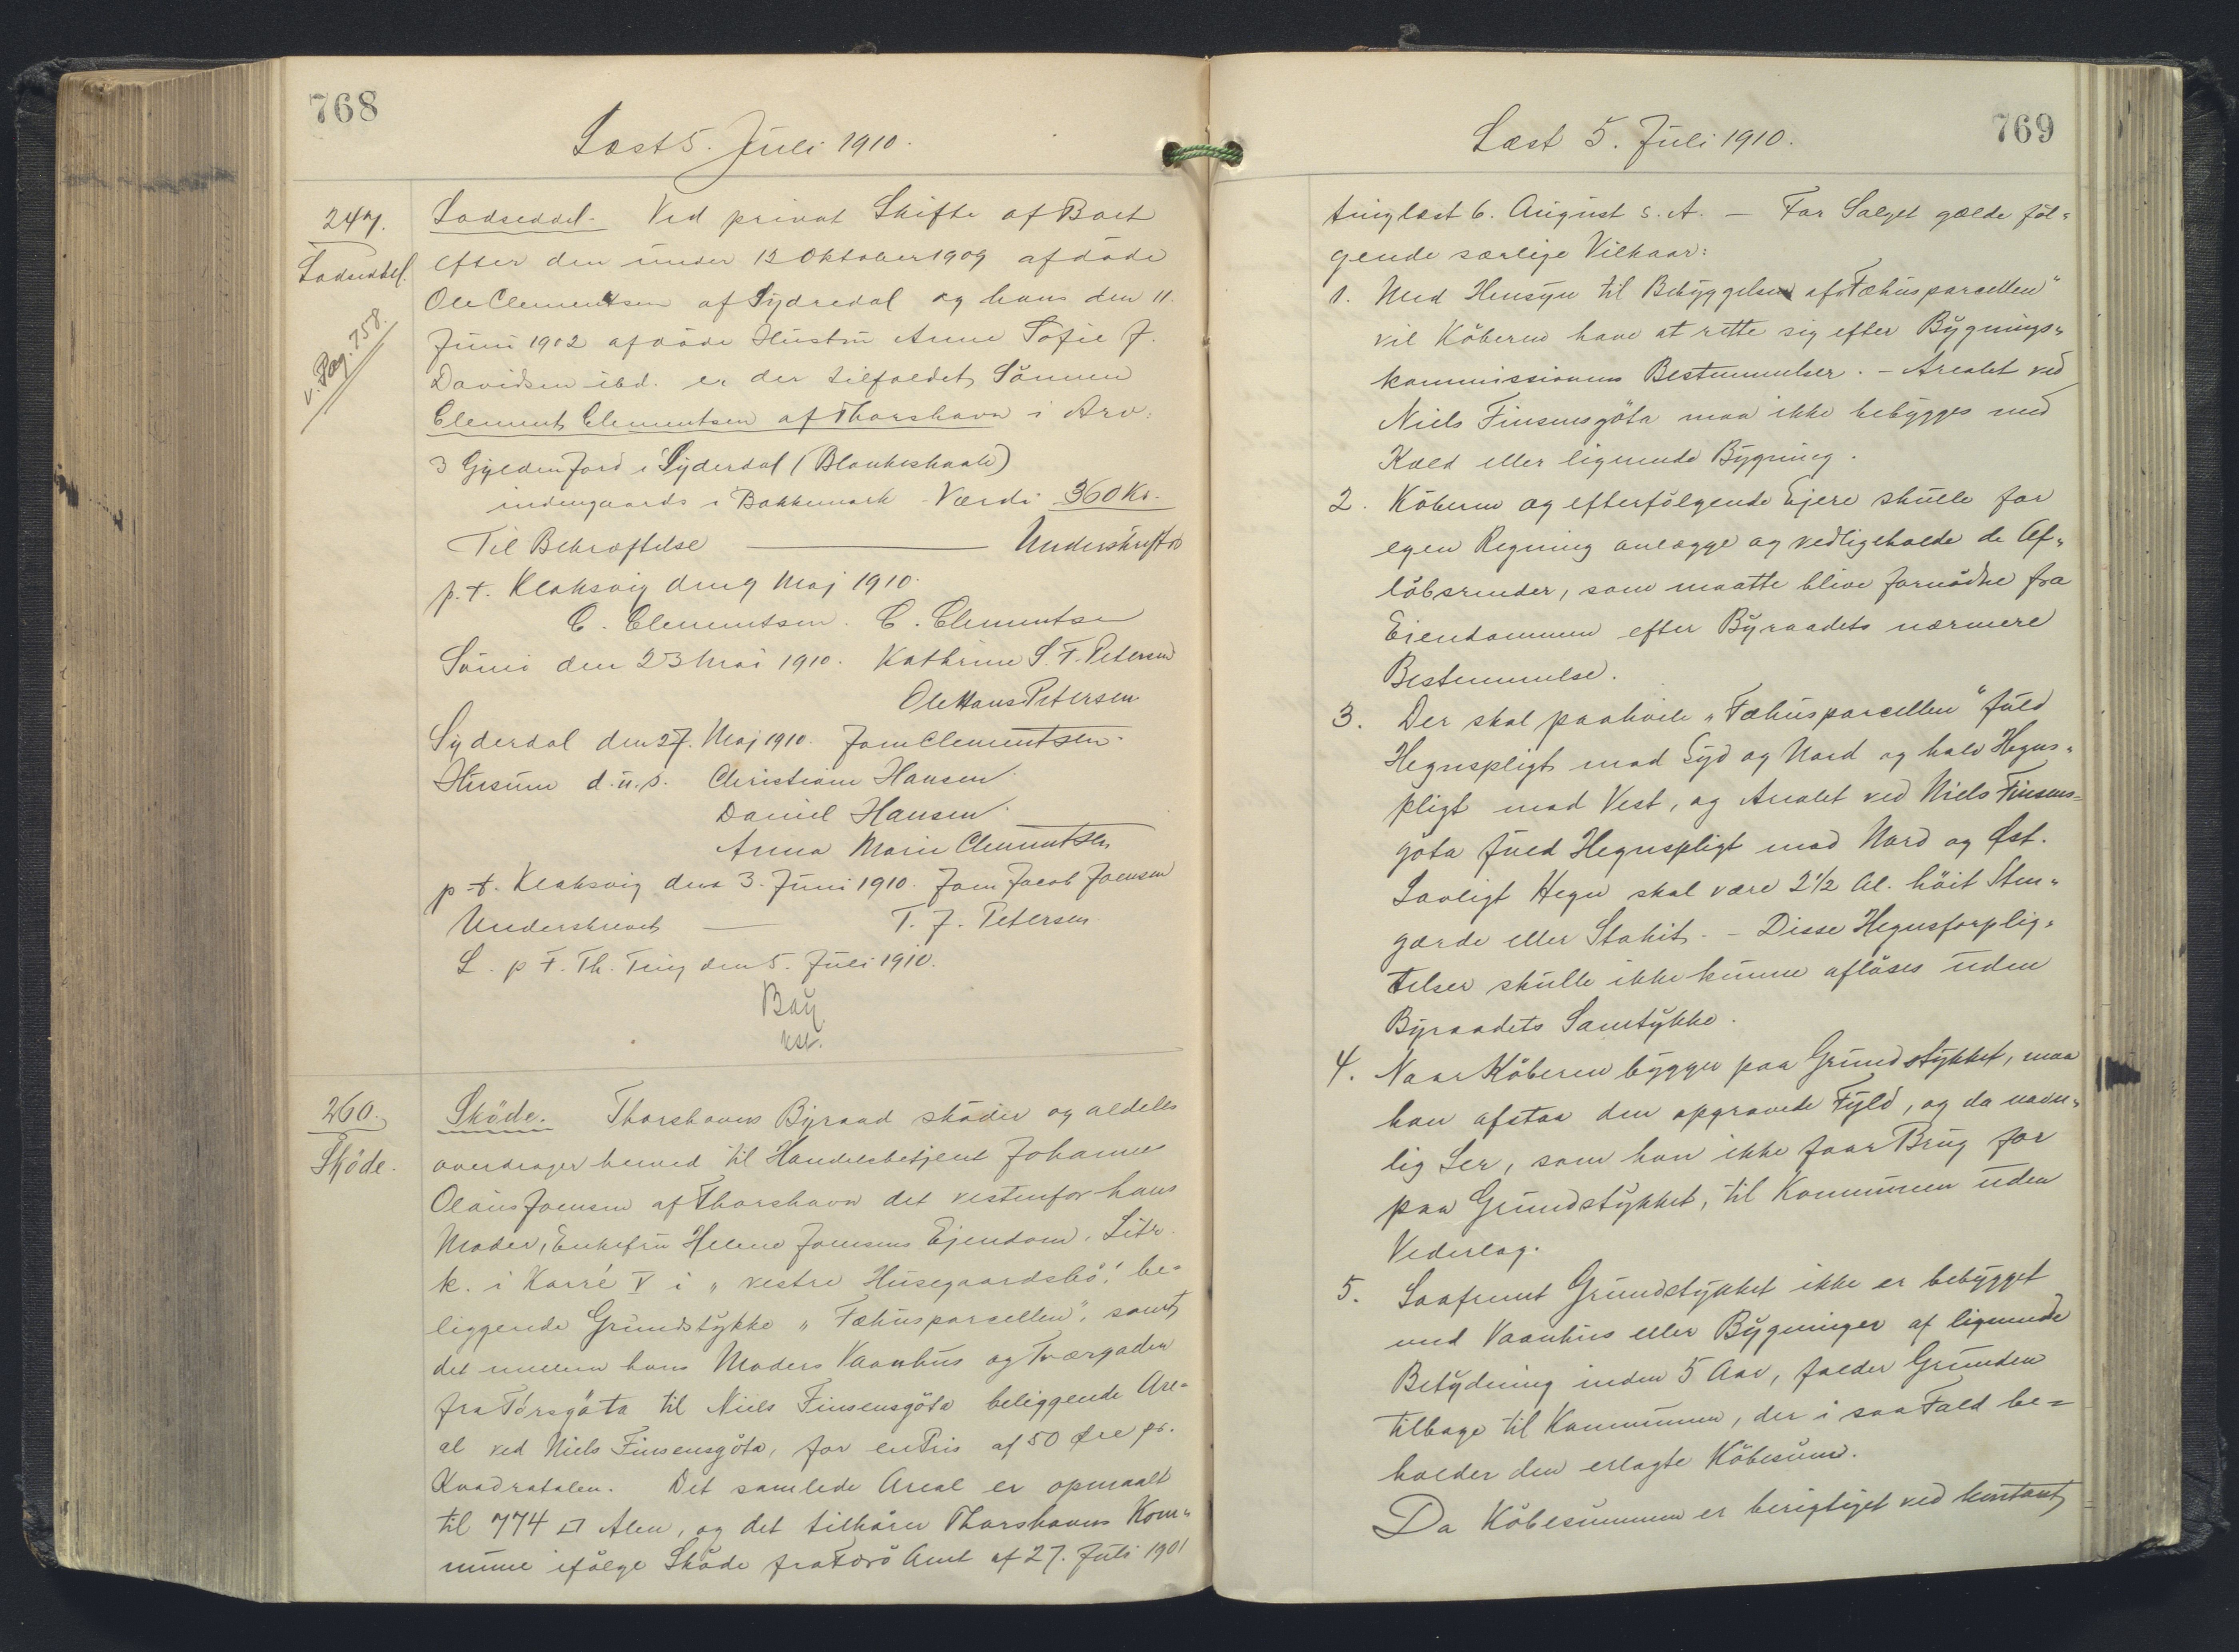 768
Læst 5. Juli 1910.
247.
Lodseddel.
v. Pag. 758.
Lodseddel. Ved privat Skifte af Boet
efter den under 12 Oktober 1909 afdøde
Ole Clementsen af Sydredal og hans den 11.
Juni 1902 afdøde Hustru Anne Sofie J.
Davidsen ibd. er der tilfaldet Sönnen
Clement Clementsen af Thorshavn i Arv:
3 Gylden Jord i Syderdal (Blankeskaale)
indengaards i Bakkemark - Værdi 360 Kr.
Til Bekræftelse — Underskrifter
p.t. Klaksvig den 9 Maj 1910.
C. Clementsen. C. Clementsen
Sümö den 23 Mai 1910. Kathrine S. F. Petersen
Ole Hans Petersen
Syderdal den 27. Maj 1910. Joen Clementsen.
Husum d.u.s. Christiane Hansen.
Daniel Hansen.
Anna Marie Clementsen
p.t. Klaksvig den 3. Juni 1910. Joen Jacob Joensen
Underskrevet — T. J. Petersen
L. p F. Th. Ting den 5. Juli 1910.
Bay
kst.
260.
Sköde.
Sköde. Thorshavns Byraad sköder og aldeles
overdrager herved til Handelsbetjent Johannes
Olaus Joensen af Thorshavn det vestenfor hans
Moder, Enkefru Helene Joensens Ejendom, Litr.
k. i Karré V i „vestre Husegaardsbö" be=
liggende Grundstykke „Fæhusparcellen", samt
det mellem hans Moders Vaanhus og Tværgaden
fra Tórsgöta til Niels Finsensgöta beliggende Are=
al ved Niels Finsensgöta, for en Pris af 50 Øre pr.
Kvadratalen. Det samlede Areal er opmaalt
til 774 □ Alen, og det tilhører Thorshavns Kom„
mune ifölge Sköde fra Færö Amt af 27. Juli 1901
Læst 5. Juli 1910.
769
tinglæst 6. August s. A. — For Salget gælde föl=
gende særlige Vilkaar:
1. Med Hensyn til Bebyggelsen af „Fæhusparcellen"
vil Köberen have at rette sig efter Bygnings„
kommissionens Bestemmelser. - Arealet ved
Niels Finsensgöta maa ikke bebygges med
Kæld eller lignende Bygning.
2. Köberen og efterfölgende Ejere skulle for
egen Regning anlægge og vedligeholde de Af„
löbsrender, som maatte blive fornödne fra
Eiendommen efter Byraadets nærmere
Bestemmelse.
3. Der skal paahvile „Fæhusparcellen" fuld
Hegnspligt mod Syd og Nord og halv Hegns„
pligt mod Vest, og Arealet ved Niels Finsens=
göta fuld Hegnspligt mod Nord og Øst.
Lovligt Hegn skal være 2½ Al. höit Sten„
gærde eller Stakit. - Disse Hegnsforplig„
telser skulle ikke kunne aflöses uden
Byraadets Samtykke.
4. Naar Köberen bygger paa Grundstykket, maa
han afstaa den opgravede Fyld, og da navn„
lig Ler, som han ikke faar Brug for
paa Grundstykket, til Kommunen uden
Vederlag.
5. Saafremt Grundstykket ikke er bebygget
med Vaanhus eller Bygninger af lignende
Betydning inden 5 Aar, falder Grunden
tilbage til Kommunen, der i saa Fald be=
holder den erlagte Köbesum.
Da Köbesummen er berigtiget ved kontant